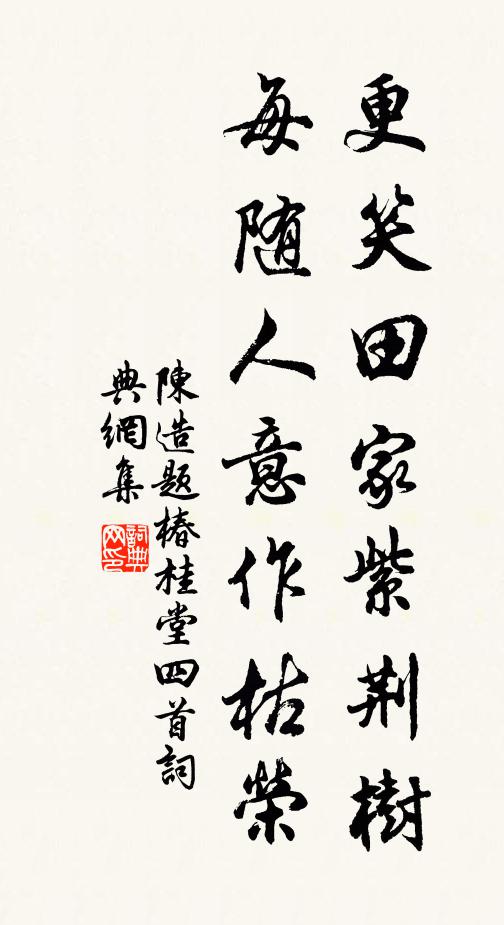 更笑田家紫荆樹
每随人意作枯榮
陳造題椿桂堂四首詞
典網集
詞典网印